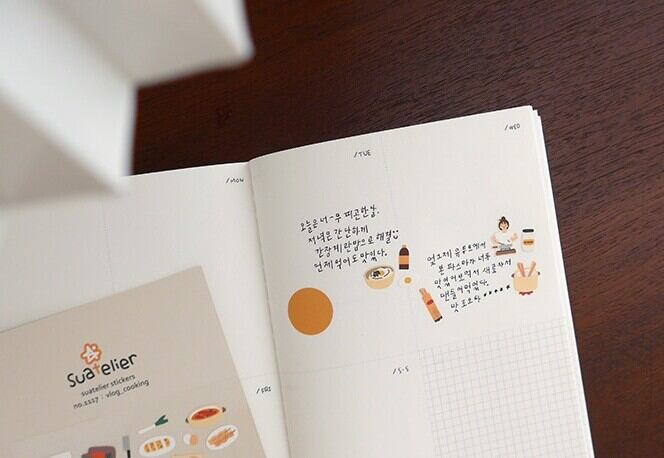 /MON
/TUE
/WED
오늘은 너-무 피곤한 날.
저녁은 간단하게
간장계란밥으로 해결
언제 먹어도 맛있다.
엊그제 유튜브에서
본 파스타가 너무
맛있어보여서 새로 사서
만들어먹었다.
맛
/FRI
/S·S
Suatelier
suatelier stickers
no.1117 : vlog_cooking